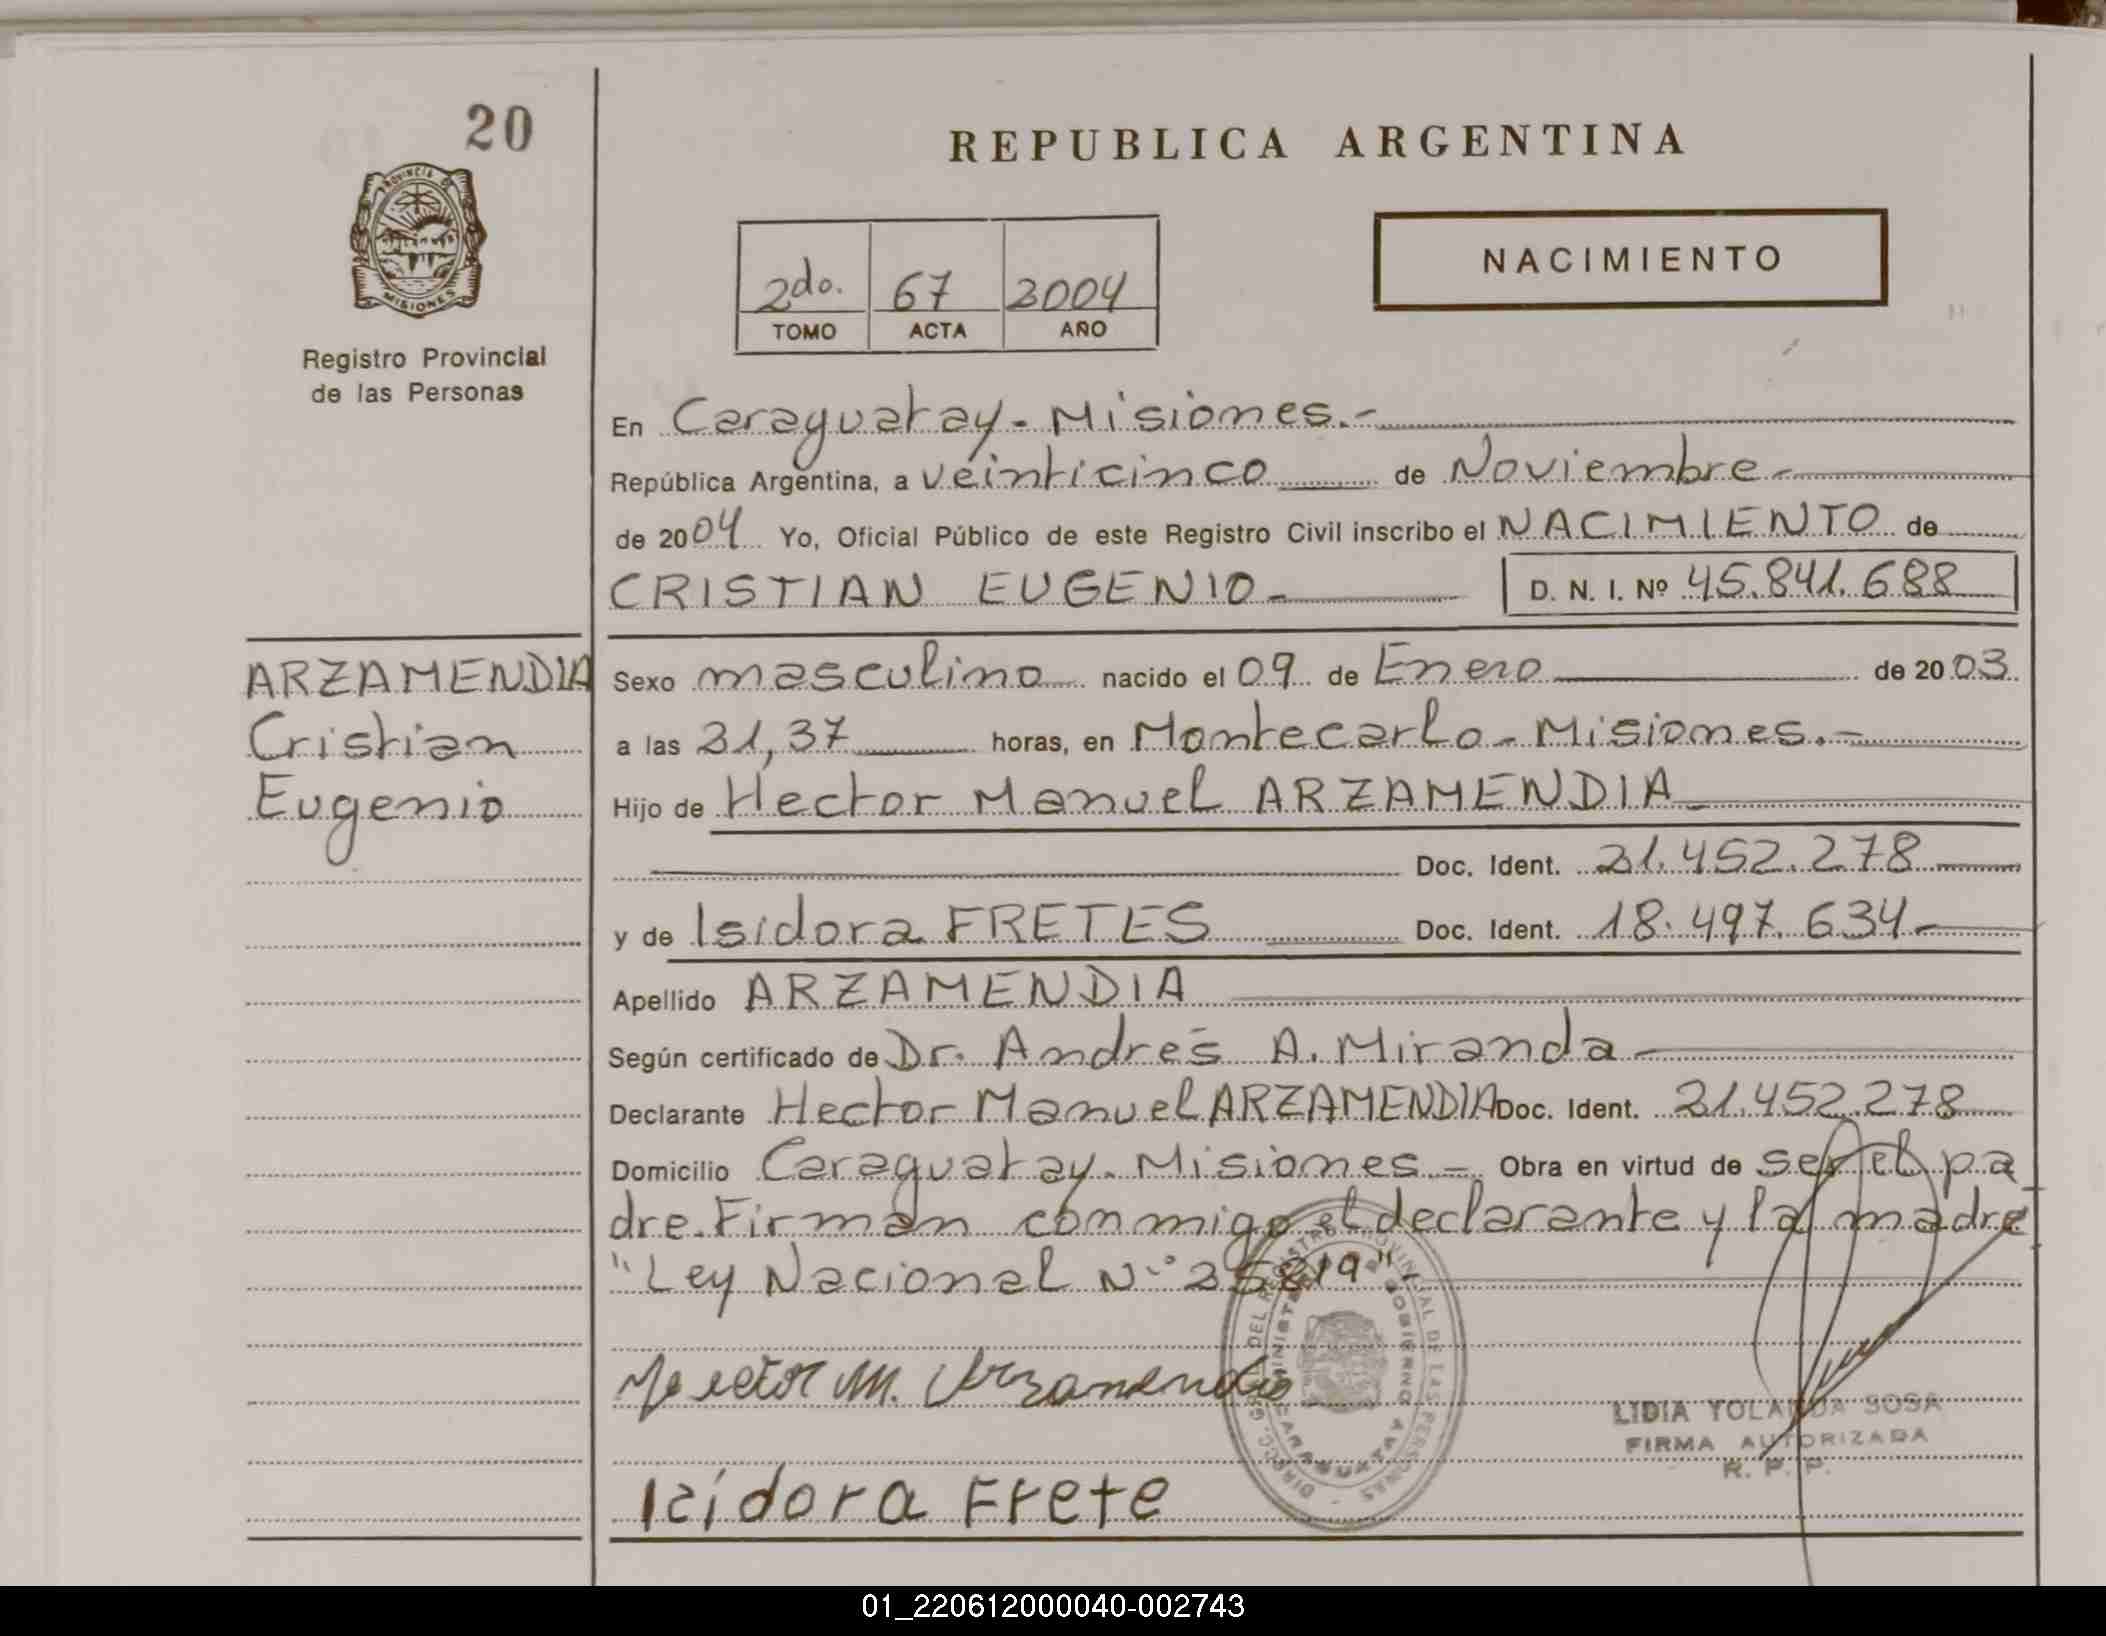 20
REPUBLICA ARGENTINA
PROVINCIA DE
MISIONES
Registro Provincial
de las Personas
2do. 67 2004
TOMO ACTA AÑO
NACIMIENTO
En Caraguatay - Misiones.-
República Argentina, a veinticinco de Noviembre-
de 2004 Yo, Oficial Público de este Registro Civil inscribo el NACIMIENTO de
CRISTIAN EUGENIO- D. N. I. Nº 45.841.688
ARZAMENDIA
Cristian
Eugenio
Sexo masculino nacido el 09 de Enero de 2003
a las 21,37 horas, en Montecarlo - Misiones.-
Hijo de Hector Manuel ARZAMENDIA-
Doc. Ident. 21.452.278
y de Isidora FRETES Doc. Ident. 18.497.634-
Apellido ARZAMENDIA
Según certificado de Dr. Andrés A. Miranda-
Declarante Hector Manuel ARZAMENDIA Doc. Ident. 21.452.278
Domicilio Caraguatay - Misiones - Obra en virtud de ser el pa
dre. Firman conmigo el declarante y la madre
"Ley Nacional N° 25819"-
Hector M. Arzamendia
Izidora Frete
DIRECC. GRAL. DEL REGISTRO PROVINCIAL DE LAS PERSONAS
MINISTERIO DE GOBIERNO
CARAGUATAY
LIDIA YOLANDA SOSA
FIRMA AUTORIZADA
R. P. P.
01_220612000040-002743